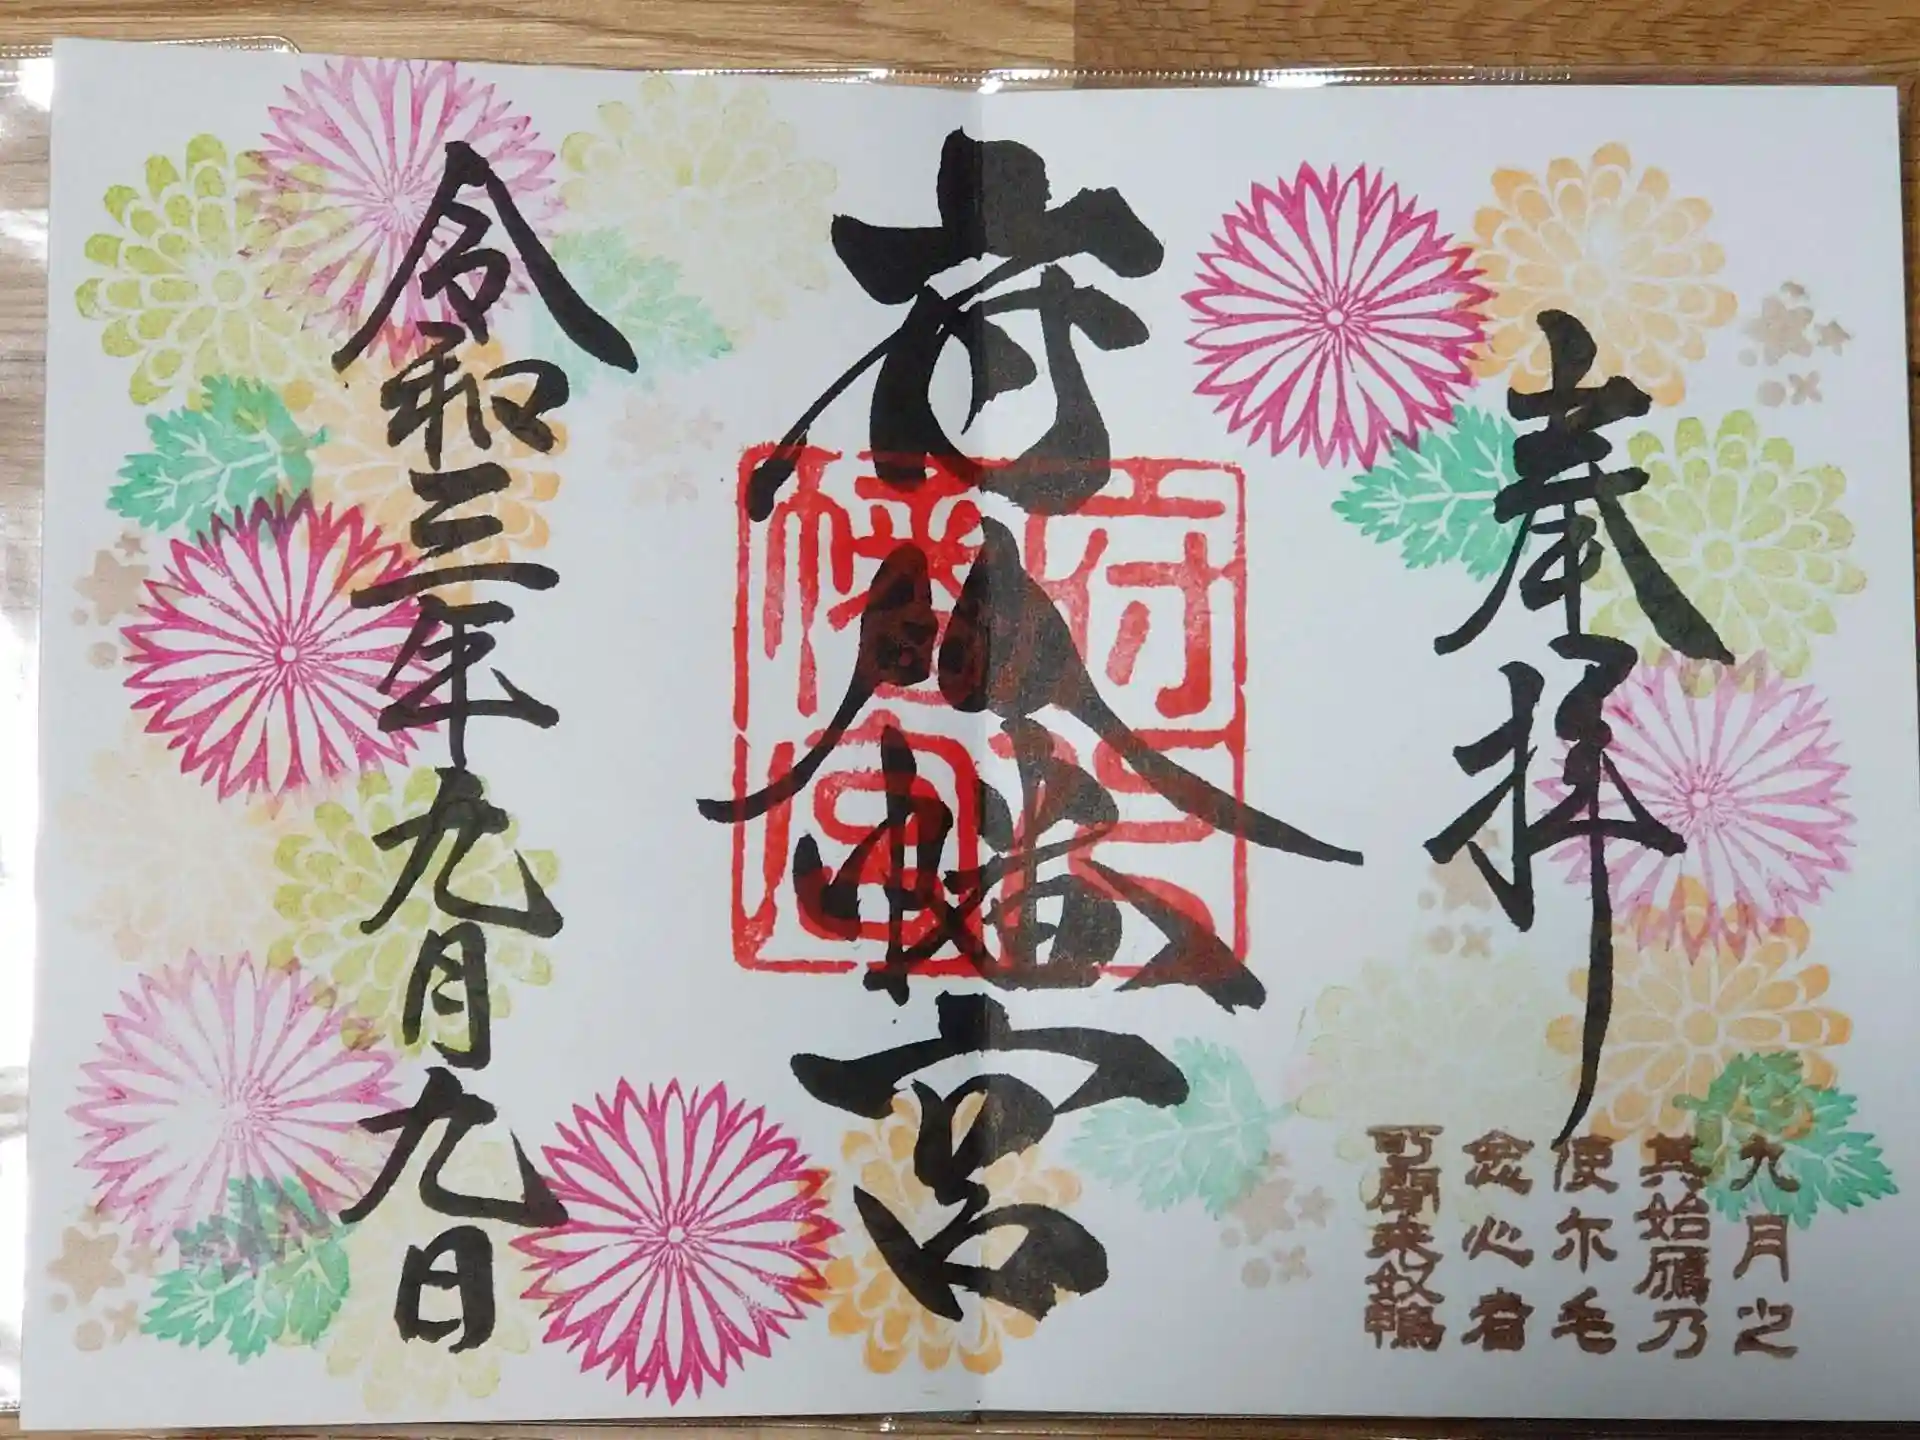 奉拝
九月之
其始鴈乃
使尓毛
念心者
所聞来奴鴨
府八幡宮
府八
幡宮
令和三年九月九日